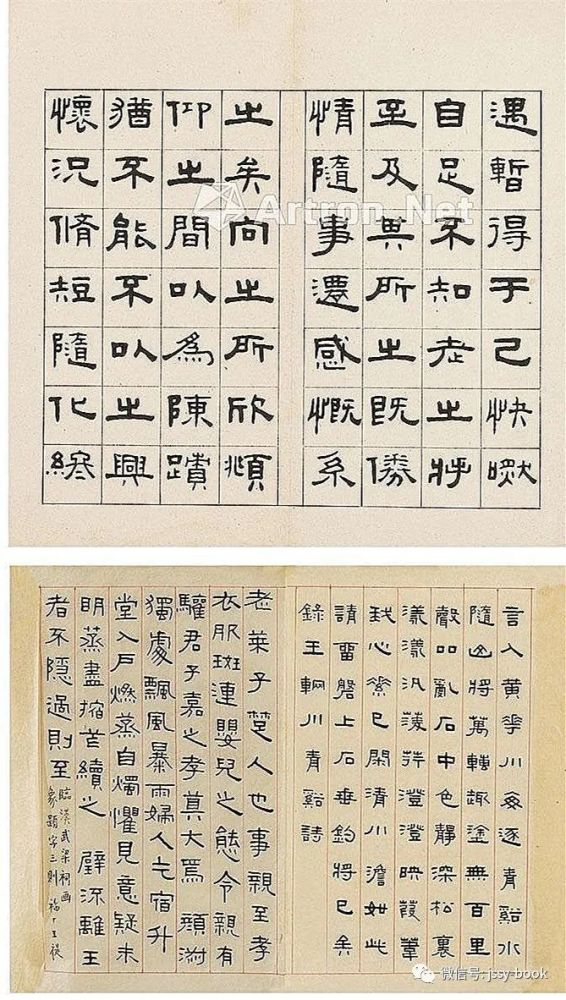 遇暫得于己快然
自足不知老之將
至及其所之既倦
情隨事遷感慨系
之矣向之所欣頫
仰之間以為陳蹟
猶不能不以之興
懷況脩短隨化終
Artron.Net
言入黃華川每逐青谿水
隨山將萬轉趣塗無百里
聲吅亂石中色靜深松裏
漾漾汎菱荇澄澄映葭葦
我心素已閑清川澹如此
請留磐上石垂釣將已矣
錄王輞川青谿詩
老萊子楚人也事親至孝
衣服斑連嬰兒之態令親有
驩君子嘉之孝莫大焉 顏淑
獨處飄風暴雨婦人乞宿升
堂入戶燃蒸自燭懼見意疑未
明蒸盡摍笮續之 璧流離王
者不隱過則至
臨漢武梁祠画
象題字三則 福厂王禔
微信号: jssy-book